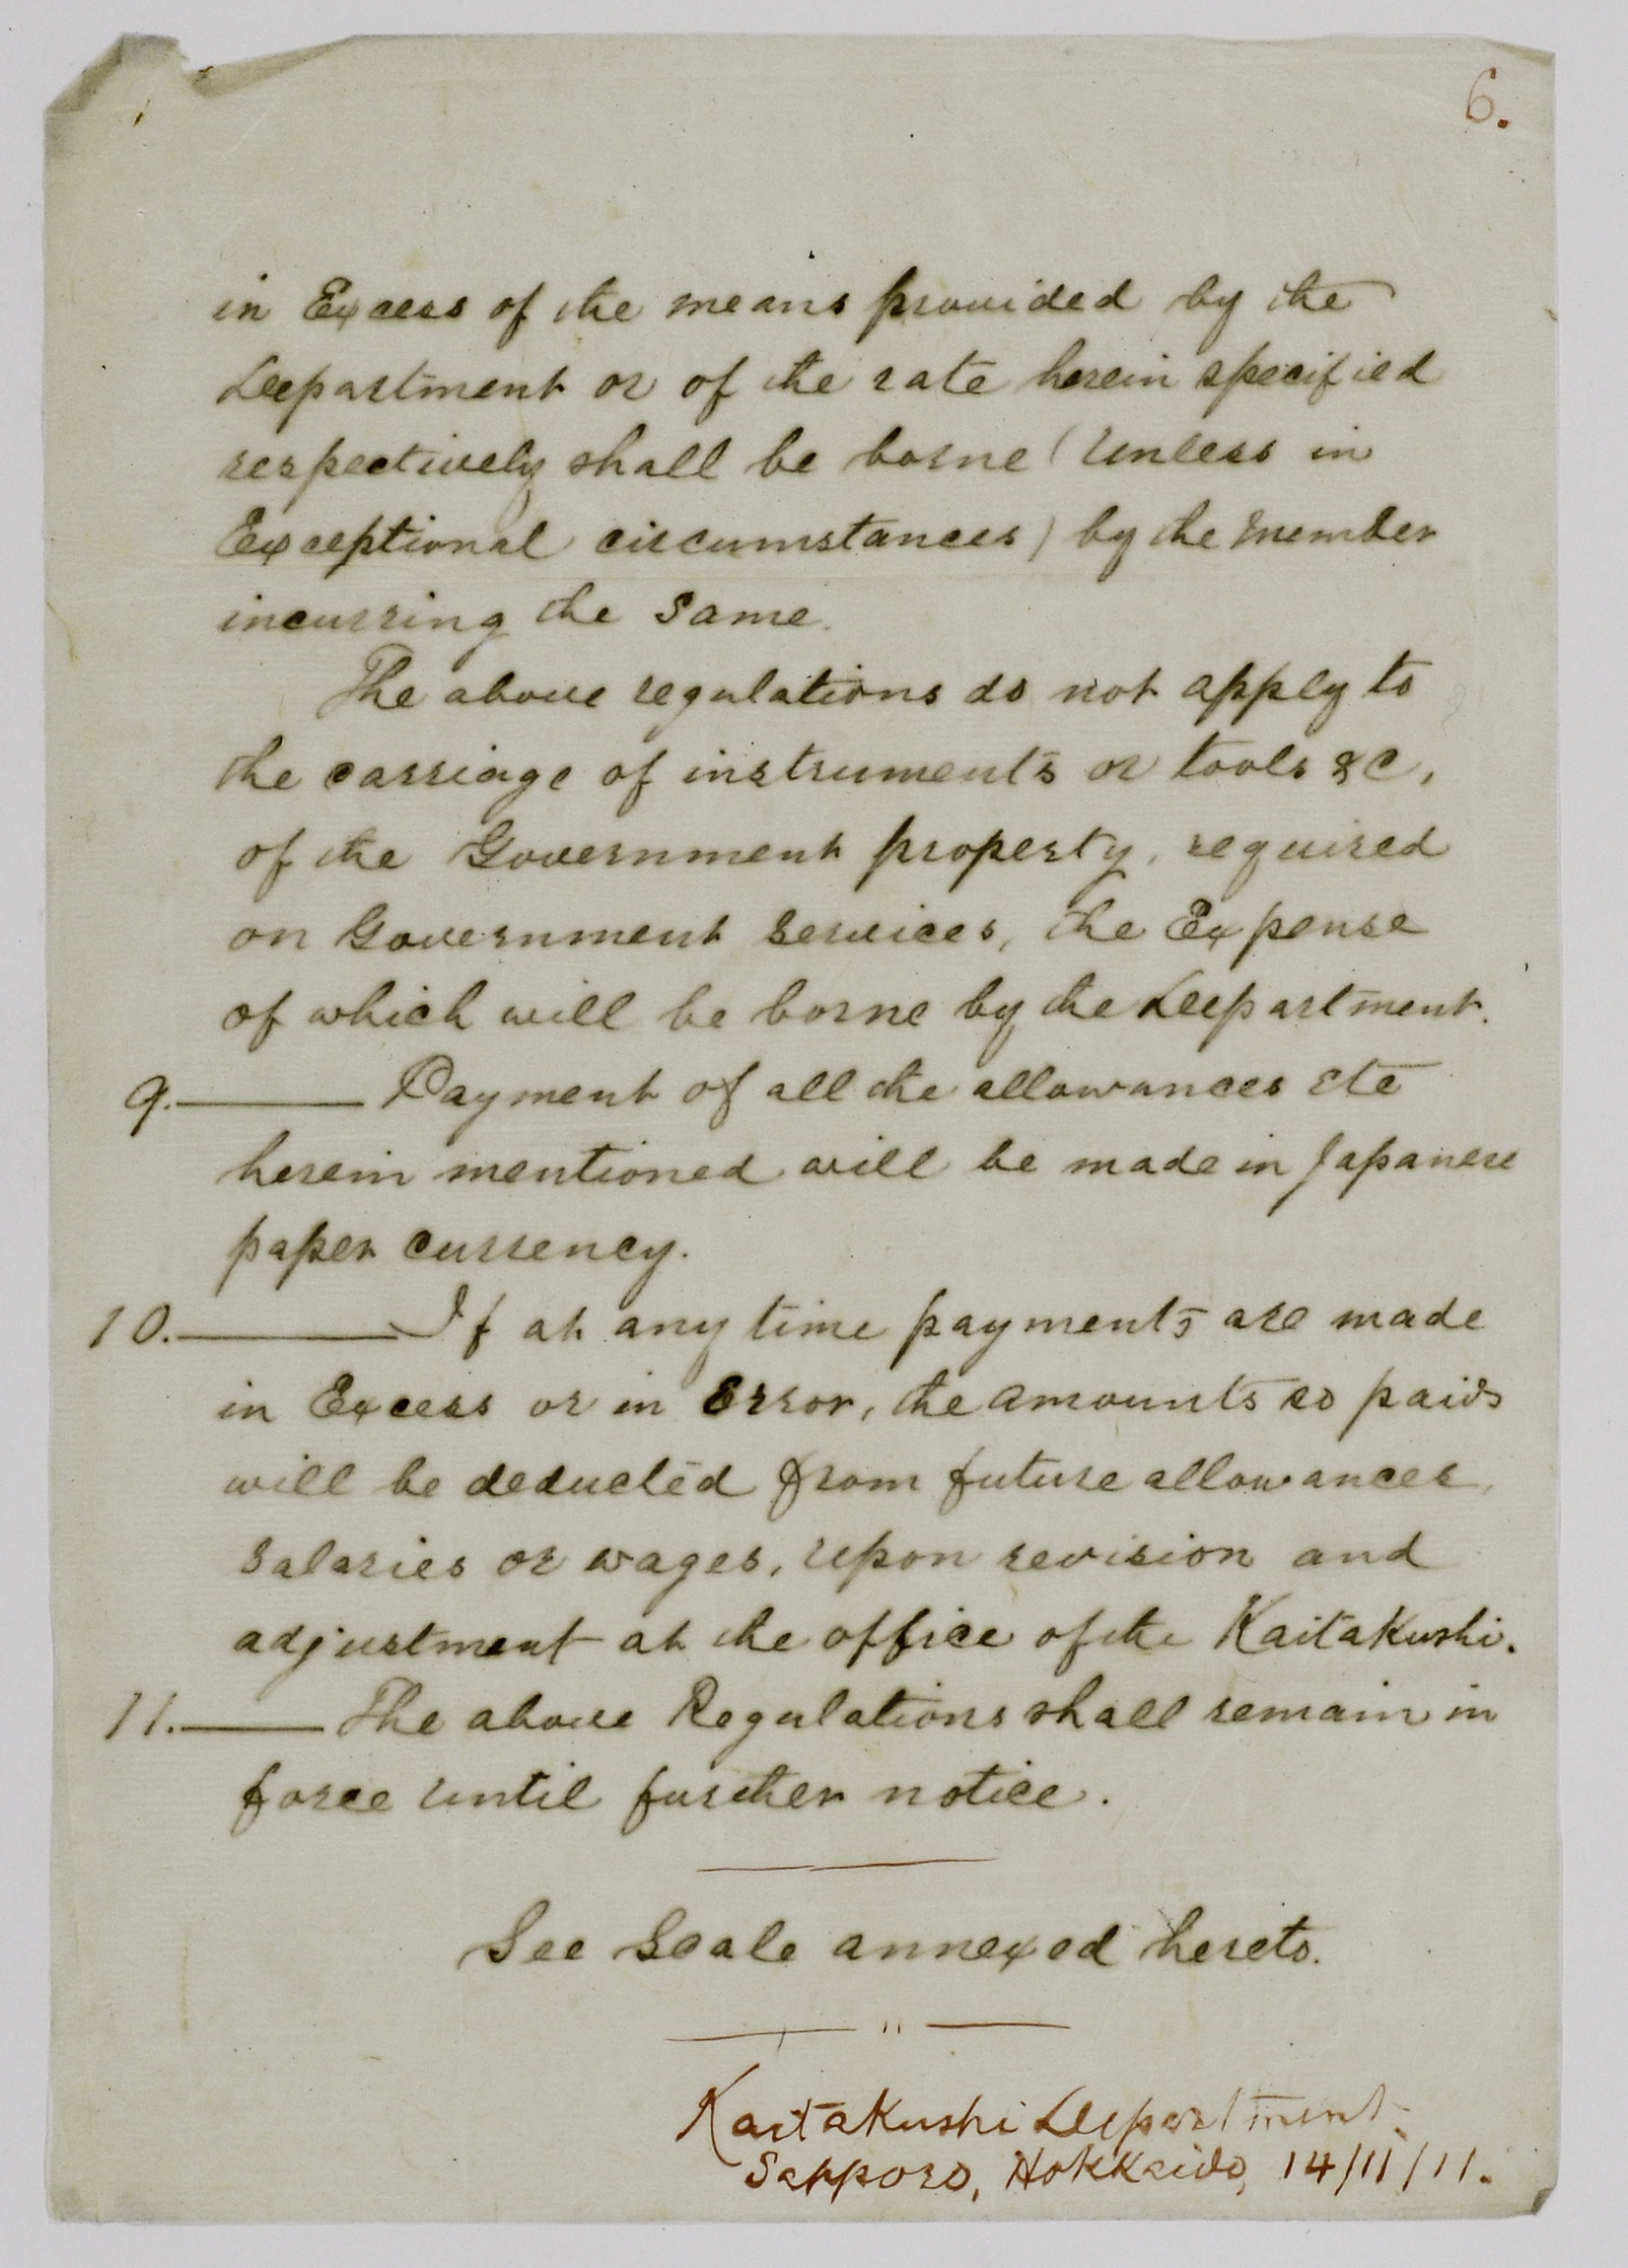 6.
in Excess of the means provided by the
Department or of the rate herein specified
respectively shall be borne (unless in
Exceptional circumstances) by the member
incurring the same.
The above regulations do not apply to
the carriage of instruments or tools &c,
of the Government property, required
on Government services, the Expense
of which will be borne by the Department.
9. Payment of all the allowances etc
herein mentioned will be made in Japanese
paper currency.
10. If at any time payments are made
in Excess or in Error, the amounts so paid
will be deducted from future allowances,
salaries or wages, upon revision and
adjustment at the office of the Kaitakushi.
11. The above Regulations shall remain in
force until further notice.
See Scale annexed hereto.
Kaitakushi Department.
Sapporo, Hokkaido, 14/11/11.